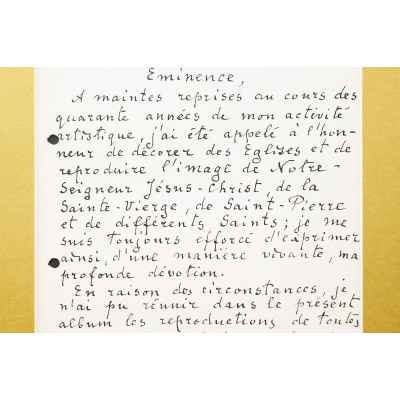 Eminence,
A maintes reprises au cours des
quarante années de mon activité
artistique, j'ai été appelé à l'hon-
neur de décorer des Eglises et de
reproduire l'image de Notre-
Seigneur Jésus-Christ, de la
Sainte-Vierge, de Saint-Pierre
et de différents Saints; je me
suis toujours efforcé d'exprimer
ainsi, d'une manière vivante, ma
profonde dévotion.
En raison des circonstances, je
n'ai pu réunir dans le présent
album les reproductions de toutes